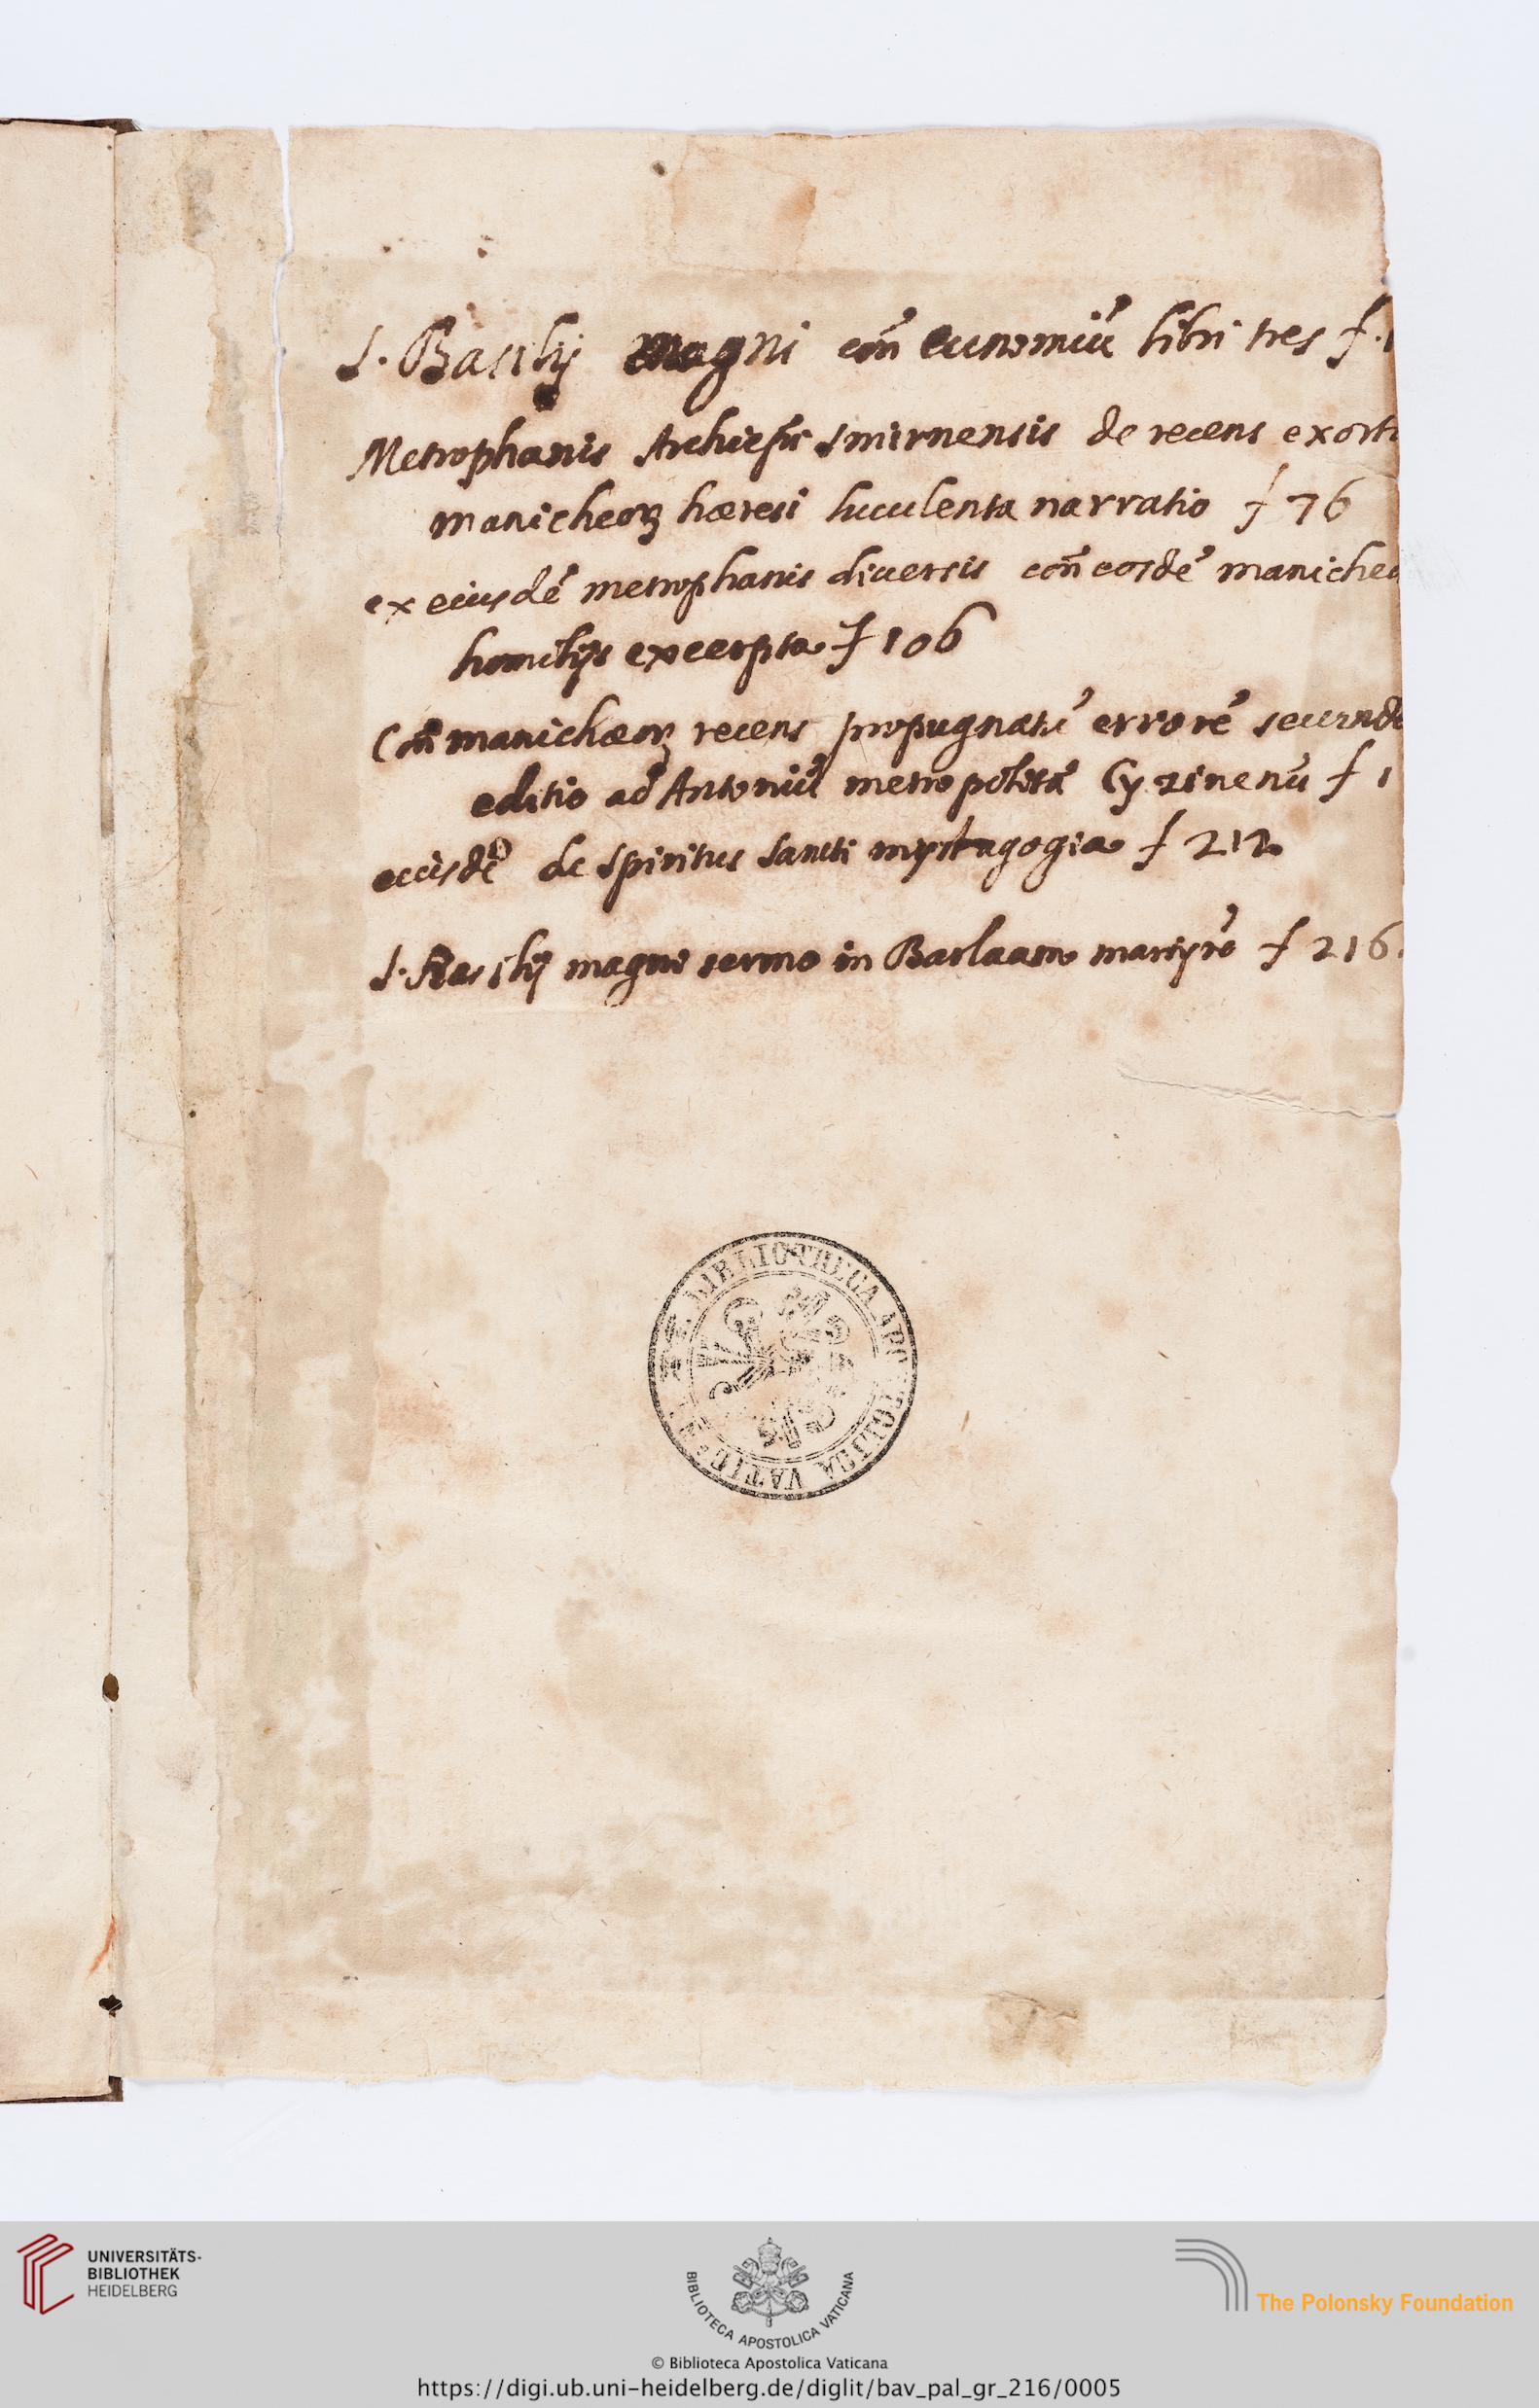 S. Basilij magni coñ eunomiũ libri tres f. 1
Metrophanis Archiepĩ Smirnensis de recens exorta
manicheoꝝ hæresi luculenta narratio f 76
ex eiusdẽ metrophanis diversis coñ eosdẽ maniche
homilijs excerpta f 106
Coñ manichæoꝝ recens propugnatũ errorẽ secund
editio ad Antoniũ metropolitã Cyzinenũ f 1
eiusdẽ de Spiritus Sancti mystagogia f 212
S. Basilij magni sermo in Barlaam martyrẽ f 216.
BIBLIOTHECA APOSTOLICA VATICANA
UNIVERSITÄTS-
BIBLIOTHEK
HEIDELBERG
BIBLIOTECA APOSTOLICA VATICANA
The Polonsky Foundation
© Biblioteca Apostolica Vaticana
https://digi.ub.uni-heidelberg.de/diglit/bav_pal_gr_216/0005